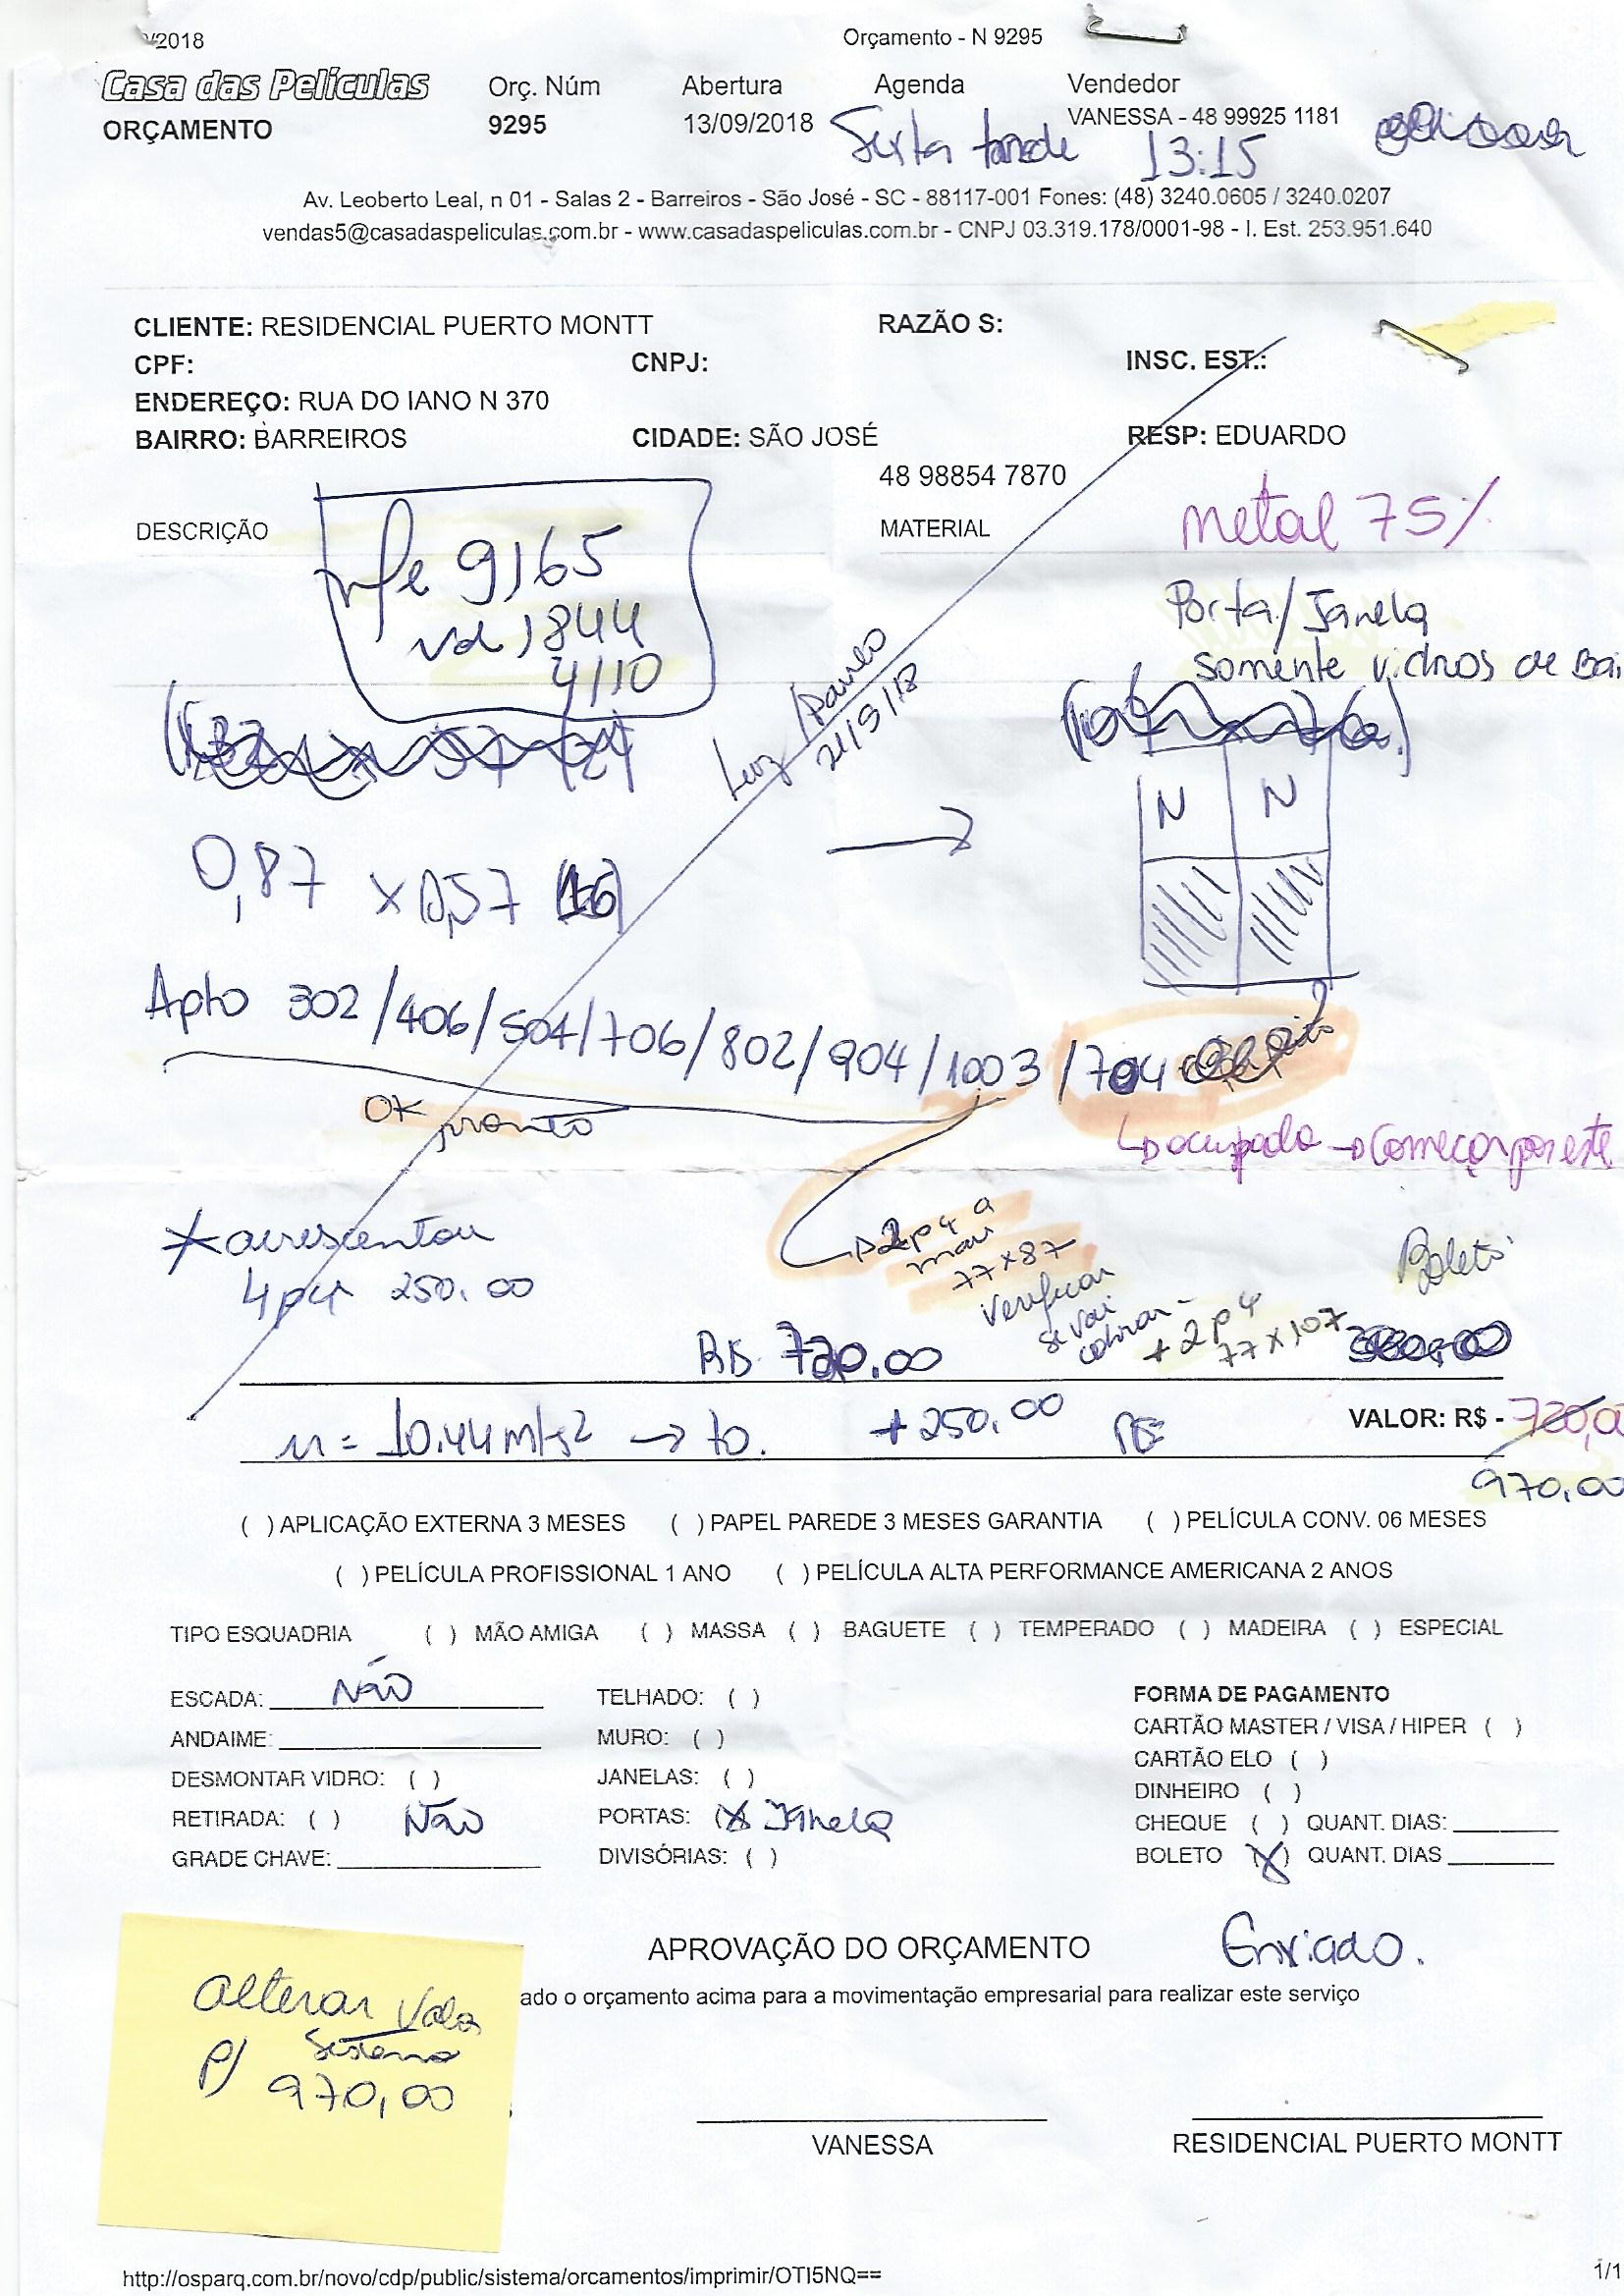 /2018 Orçamento - N 9295
Casa das Películas Orç. Núm Abertura Agenda Vendedor
ORÇAMENTO 9295 13/09/2018 VANESSA - 48 99925 1181
Sexta tarde 13:15
Av. Leoberto Leal, n 01 - Salas 2 - Barreiros - São José - SC - 88117-001 Fones: (48) 3240.0605 / 3240.0207
vendas5@casadaspeliculas.com.br - www.casadaspeliculas.com.br - CNPJ 03.319.178/0001-98 - I. Est. 253.951.640
CLIENTE: RESIDENCIAL PUERTO MONTT RAZÃO S:
CPF: CNPJ: INSC. EST.:
ENDEREÇO: RUA DO IANO N 370
BAIRRO: BARREIROS CIDADE: SÃO JOSÉ RESP: EDUARDO
48 98854 7870
DESCRIÇÃO MATERIAL metal 75%
nfe 9165
vd 1844
4/10
Porta/Janela
somente vidros de Bai
21/9/18
N N
0,87 x 0,57 (16)
Apto 302/406/504/706/802/904/1003/704
OK pronto
ocupado → Começar por este
*acrescentou
4 pç 250.00
2 pç a
mais
77x87
verificar
se vai
cobrar
+ 2 pç
77x107
Boleto
R$ 720.00
m = 10.44 mts2 → to. +250.00 R$ VALOR: R$ - 720,0
970,00
( ) APLICAÇÃO EXTERNA 3 MESES ( ) PAPEL PAREDE 3 MESES GARANTIA ( ) PELÍCULA CONV. 06 MESES
( ) PELÍCULA PROFISSIONAL 1 ANO ( ) PELÍCULA ALTA PERFORMANCE AMERICANA 2 ANOS
TIPO ESQUADRIA ( ) MÃO AMIGA ( ) MASSA ( ) BAGUETE ( ) TEMPERADO ( ) MADEIRA ( ) ESPECIAL
ESCADA: Não TELHADO: ( ) FORMA DE PAGAMENTO
ANDAIME: MURO: ( ) CARTÃO MASTER / VISA / HIPER ( )
DESMONTAR VIDRO: ( ) JANELAS: ( ) CARTÃO ELO ( )
DINHEIRO ( )
RETIRADA: ( ) Não PORTAS: (X) Janela CHEQUE ( ) QUANT. DIAS:
GRADE CHAVE: DIVISÓRIAS: ( ) BOLETO (X) QUANT. DIAS
APROVAÇÃO DO ORÇAMENTO Enviado.
ado o orçamento acima para a movimentação empresarial para realizar este serviço
alterar valor
sistema
p/ 970,00
VANESSA RESIDENCIAL PUERTO MONTT
http://osparq.com.br/novo/cdp/public/sistema/orcamentos/imprimir/OTI5NQ== 1/1